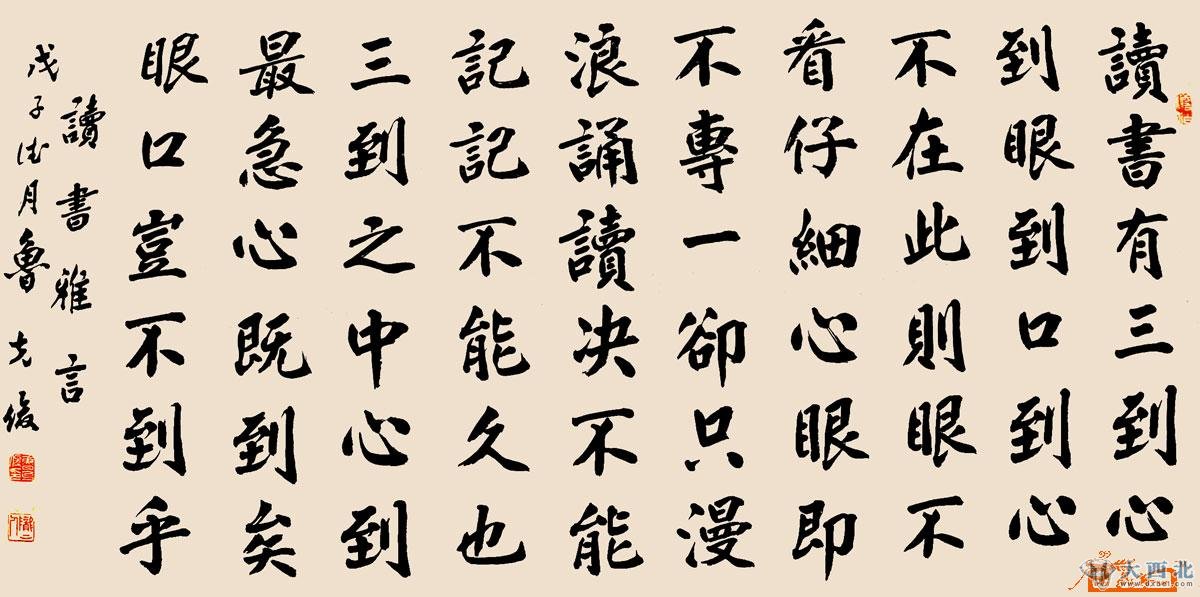 讀書有三到心
到眼到口到心
不在此則眼不
看仔細心眼即
不專一卻只漫
浪誦讀决不能
記記不能久也
三到之中心到
最急心既到矣
眼口豈不到乎
讀書雅言
戊子月魯
大西北